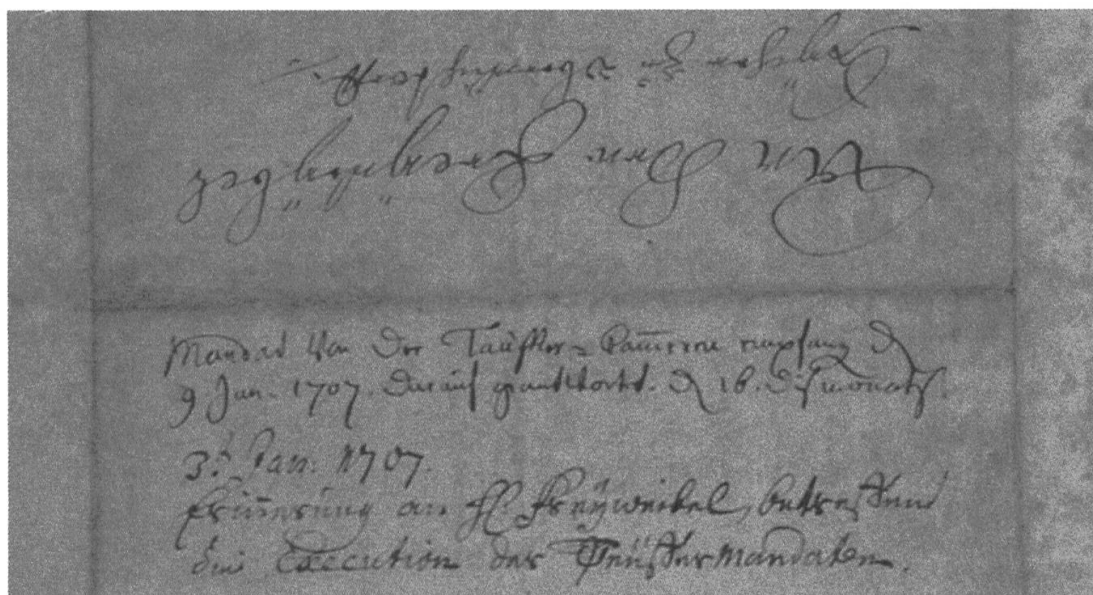 An Herren Freyweibel
Mandat von der Täuffer-Cam̄eren empfang d.
9 Jan. 1707. darauf geantwortet. d. 16. diß monats.
3.t Jan. 1707.
Erin̄erung an Hl. Freyweibel, betreffend
die Execution der Teüffermandaten.